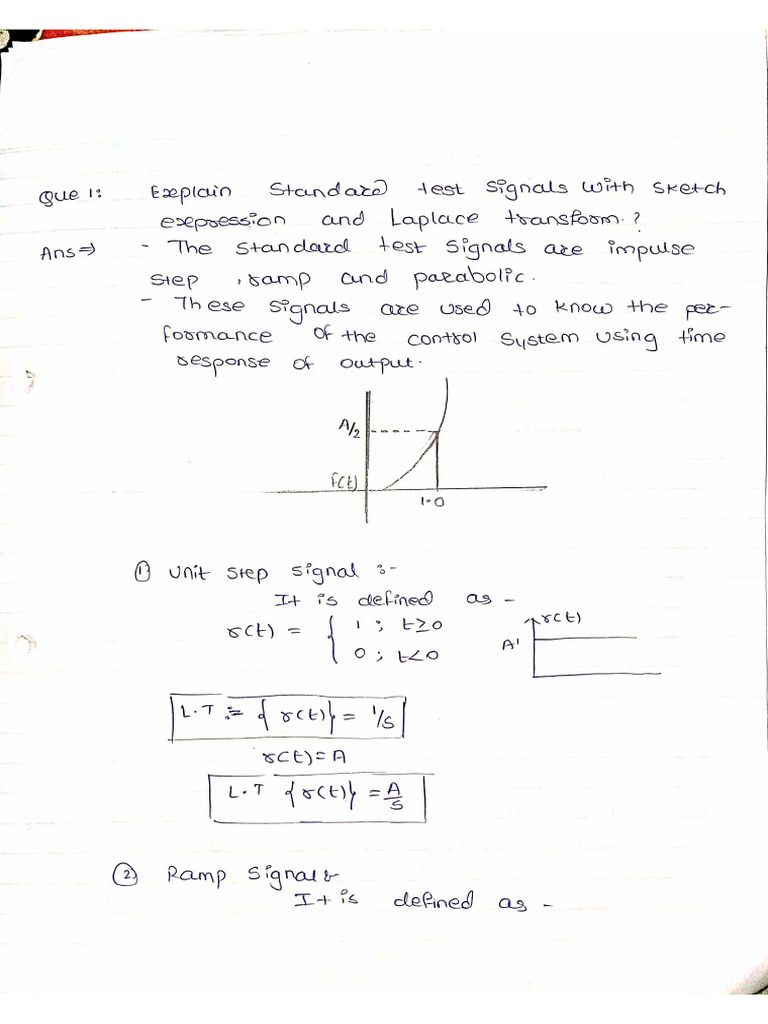 Que 1: Explain Standard test signals with sketch
expression and Laplace transform.?
Ans⇒ - The standard test signals are impulse
step, ramp and parabolic.
- These signals are used to know the per-
formance of the control system using time
response of output.
A/2
f(t)
1.0
① Unit step signal :-
It is defined as -
r(t) = { 1 ; t≥0
0 ; t<0
r(t)
A'
L.T := {r(t)} = 1/s
r(t) = A
L.T {r(t)} = A/s
② Ramp signal :-
It is defined as -